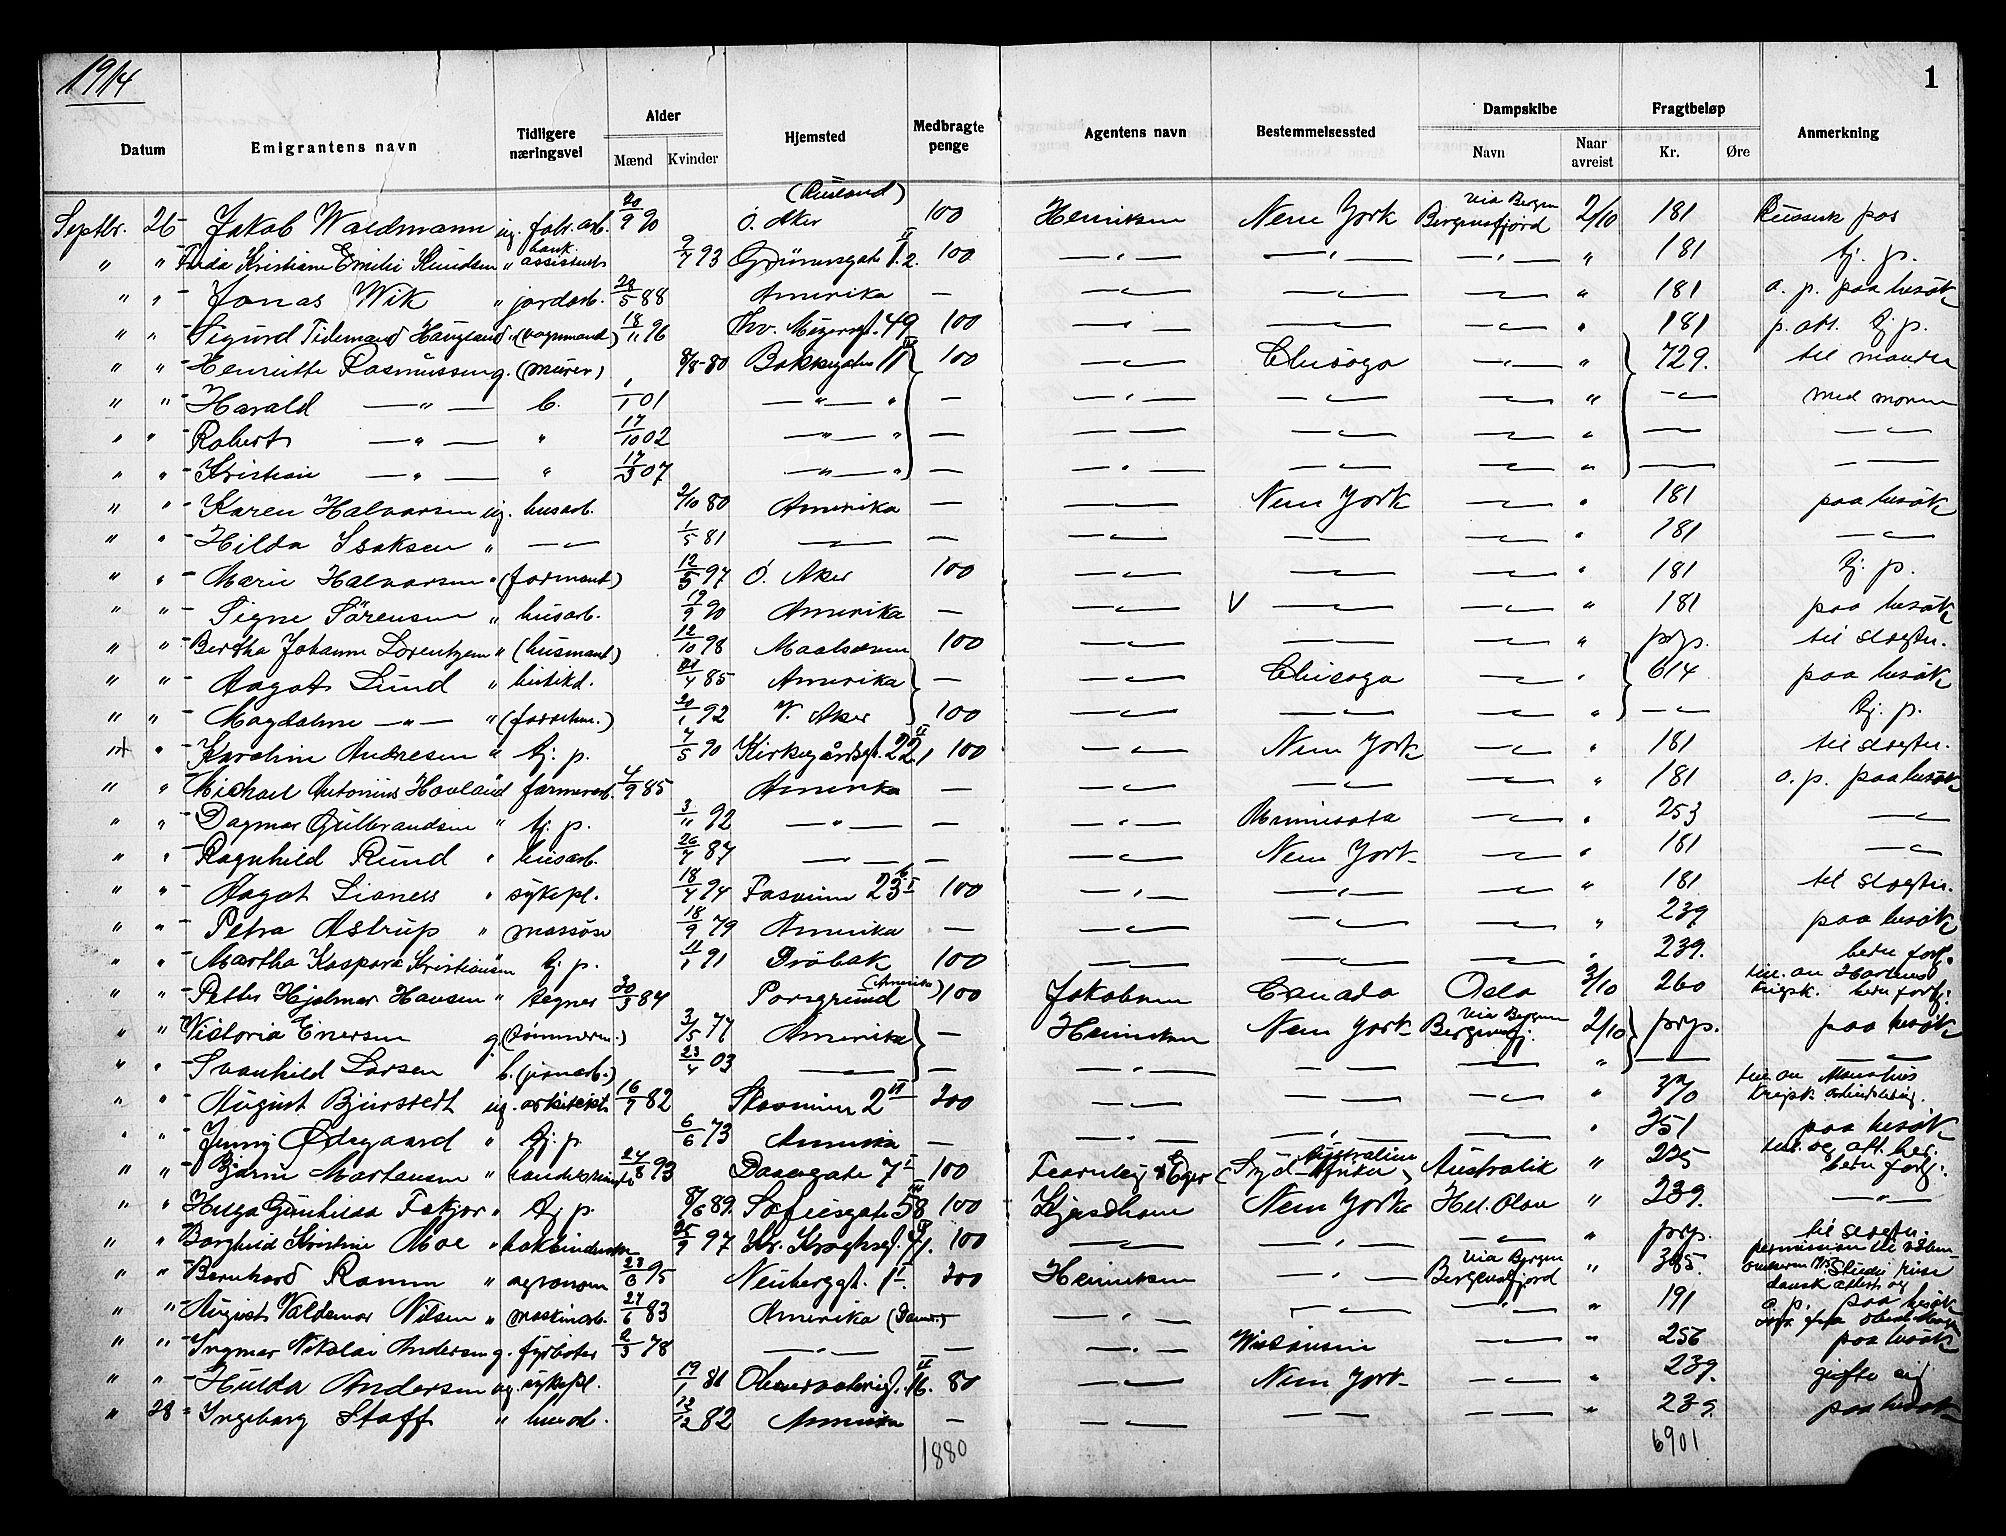 1914
1
Datum Emigrantens navn Tidligere næringsvei Alder Mænd Kvinder Hjemsted Medbragte penge Agentens navn Bestemmelsessted Dampskibe Navn Naar avreist Fragtbeløp Kr. Øre Anmerkning
Septbr. 26 Jakob Waldmann ug. fabr. arb. 20/9 90 Ö. Aker (Rusland) 100 Henriksen New York via Bergen Bergensfjord 2/10 181 Russisk pas
" " Frida Kristiane Emilie Knudsen " bank assistent 9/7 93 Grünersgate 1 II 2. 100 — " — — " — — " — " 181 tj. p.
" " Jonas Wik " jordarb. 28/5 88 Amerika — — " — — " — — " — " 181 a. p. paa besøk
" " Sigurd Tidemand Haugland " (vognmand) 18/11 96 Thv. Meyersgt. 49 100 — " — — " — — " — " 181 p. att. tj. p.
" " Henriette Rasmussen g. (murer) 8/8 80 Bakkegaten 11 100 — " — Chicago — " — " 729. til manden
" " Harald — " — b. 1/1 01 — " — " — — " — — " — — " — " — " — med moren
" " Robert — " — " 17/10 02 — " — " — — " — — " — — " — " — — " —
" " Kristian — " — " 17/3 07 — " — " — — " — — " — — " — " — — " —
" " Karen Halvorsen ug. husarb. 2/10 80 Amerika — — " — New York — " — " 181 paa besøk
" " Hilda Isaksen " — " — 1/5 81 — " — — — " — — " — — " — " 181 — " —
" " Marie Halvorsen " (formand) 12/5 97 Ö. Aker 100 — " — — " — — " — " 181 tj. p.
" " Signe Sörensen " husarb. 19/9 90 Amerika — — " — V — " — — " — " 181 paa besøk
" " Bertha Johanne Lorentzen " (husmand) 12/10 98 Maalselven 100 — " — — " — — " — " prp. til slegtn.
" " Aagot Lund " butikd. 21/4 85 Amerika — — " — Chicago — " — " 614 paa besøk
" " Magdalene — " — " 20/1 92 V. Aker 100 — " — — " — — " — " — " — tj. p.
" " Karoline Andresen " tj. p. 7/5 90 Kirkegårdsgt. 22 II 1 100 — " — New York — " — " 181 til slegtn.
" " Michael Antonius Hovland " farmerarb. 4/9 85 Amerika — — " — — " — — " — " 181 a. p. paa besøk
" " Dagmar Gulbrandsen " tj. p. 3/11 92 — " — — — " — Minnesota — " — " 253 — " —
" " Ragnhild Rund " husarb. 26/7 87 — " — — — " — New York — " — " 181 — " —
" " Aagot Lianess " sykepl. 18/4 94 23 100 — " — — " — — " — " 181 til slegtn.
" " Petra Astrup " massöse 18/9 79 Amerika — — " — — " — — " — " 239 paa besøk
" " Martha Kaspara Kristiansen tj. p. 11/1 91 Dröbak 100 — " — — " — — " — " 239.
" " Petter Hjalmar Hansen " tegner 30/3 84 Porsgrund (Amerika) 100 Jakobsen Canada Oslo 3/10 260
" " Victoria Enersen g. 3/5 77 Amerika — Henriksen New York via Bergen Bergensfj. 2/10 prp. paa besøk
" " Svanhild Larsen b. (jernarb.) 23/4 03 — " — — — " — — " — — " — " — — " —
" " August Bjurstedt ug. arkitekt 16/7 82 2 II 200 — " — — " — — " — " 370
" " Jenny Ødegaard " tj. p. 6/6 73 Amerika — — " — — " — — " — " 351 paa besøk
" " Bjarne Mortensen " 24/8 93 Daasgate 7 I 100 Fearnley & Eger (Syd-Afrika) Australien Australic " 225
" " Helga Gunhilda " tj. p. 8/6 89. Sofiesgate 58 III 100 New York Hel. Olav " 239. — " —
" " Borghild Kristine Moe " bokbinderske 25/9 97 Kr. Kroghsgt. 100 — " — — " — — " — " prp. til slegtn.
" " Bernhard Ramm " agronom 23/6 95 Neuberggt. 1 I. 200 Henriksen — " — via Bergen Bergensfjord " 385.
" " August Valdemar Nilsen " maskinarb. 27/6 83 Amerika — — " — — " — — " — " 191 a. p. paa besøk
" " Ingmar Nikolai Andersen g. fyrböter 2/3 78 — " — — — " — Wisconsin — " — " 256 paa besøk
" " Hulda Andersen ug. sykepl. 19/1 81 Observatoriegt. 16. II 80 — " — New York — " — " 239. gifte sig
" 28 Ingeborg Staff " husarb. 12/12 82 Amerika — — " — — " — — " — " 239. paa besøk
1880 6901